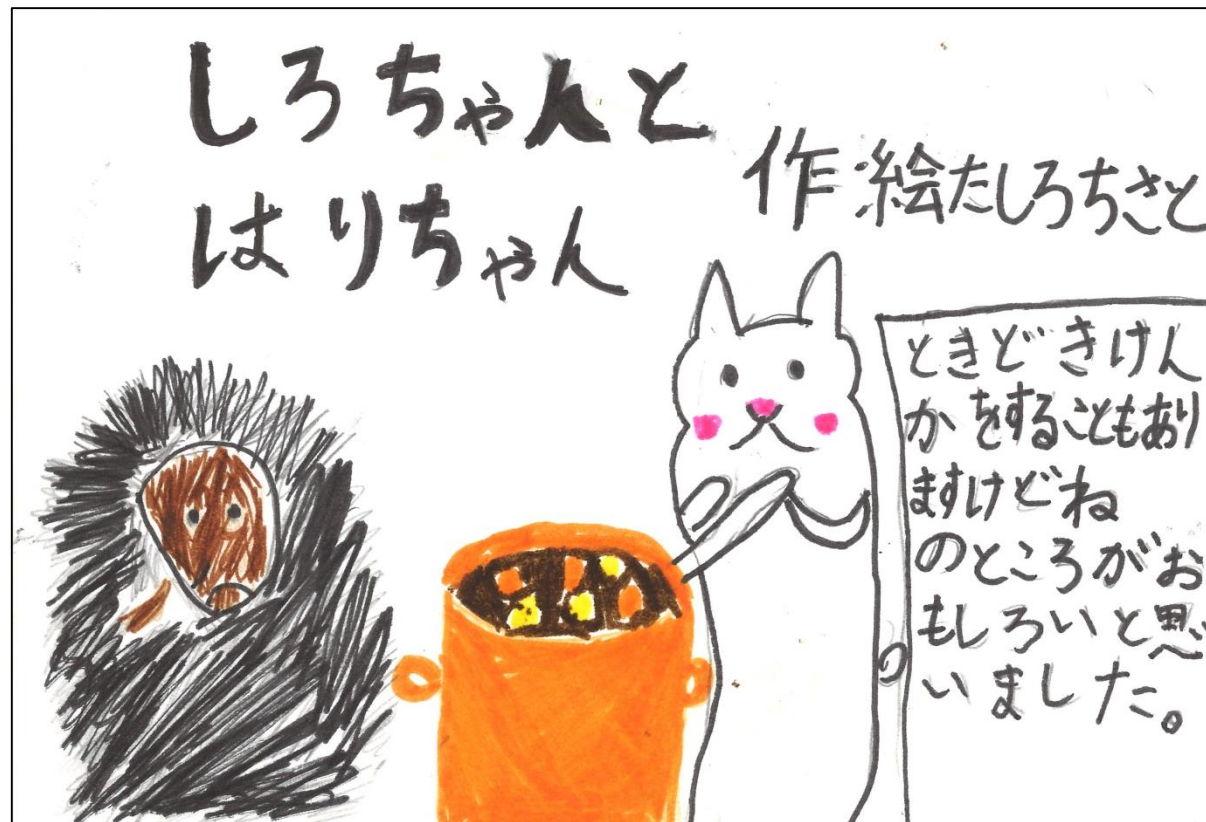 しろちゃんと
はりちゃん
作 絵たしろちさと
ときどきけん
かをすることもあり
ますけどね
のところがお
もしろいと思
いました。